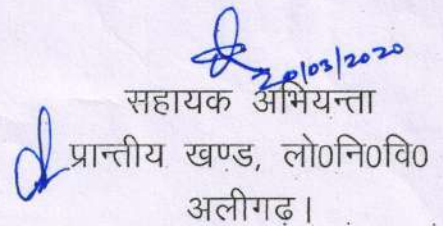 20/03/2020
सहायक अभियन्ता
प्रान्तीय खण्ड, लो0नि0वि0
अलीगढ़।